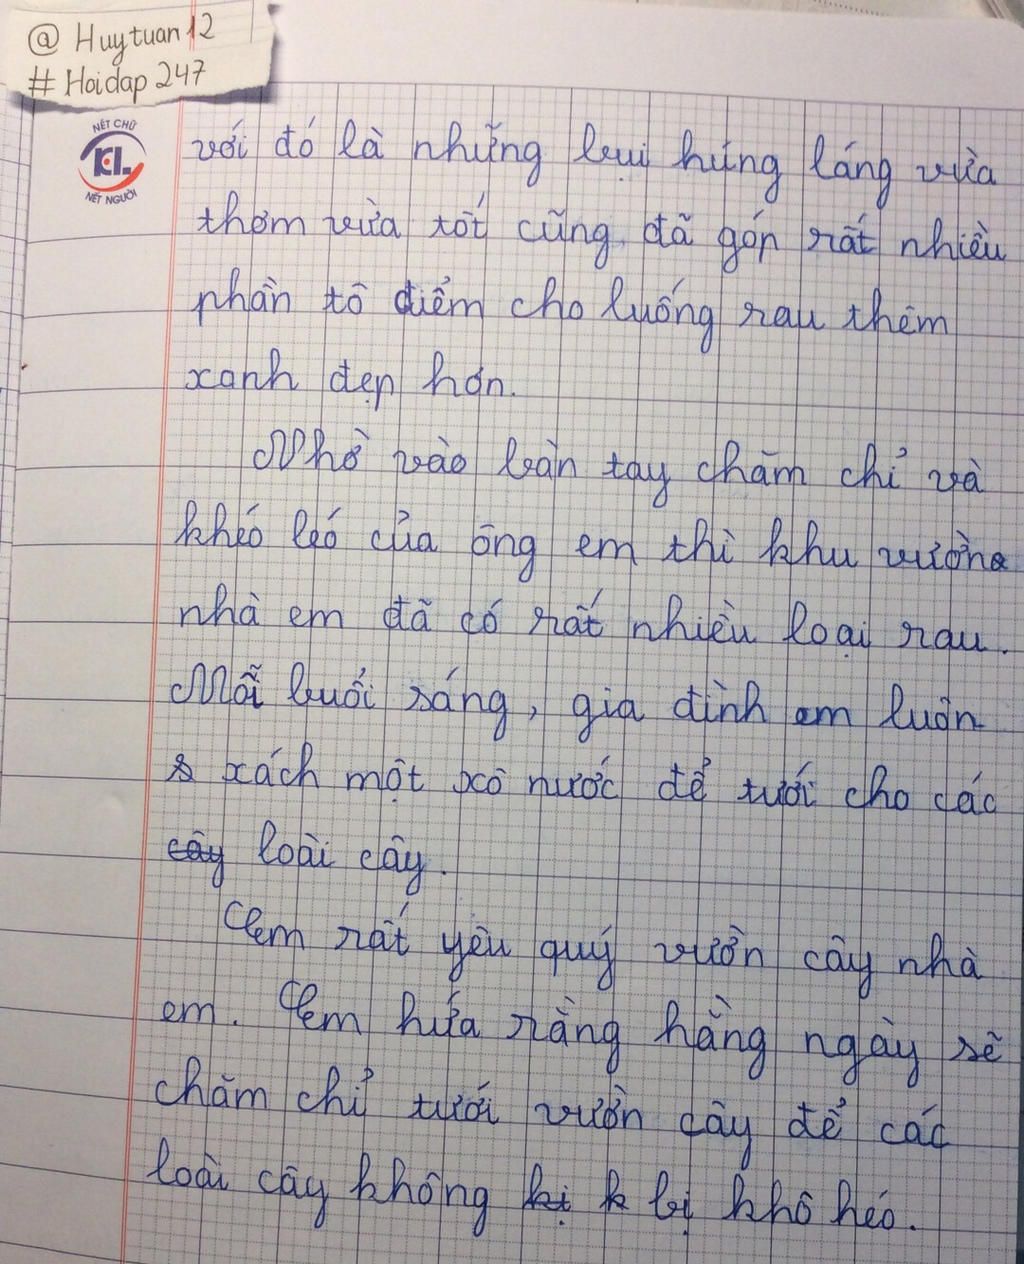 @ Huytuan12
# Hoidap 247
NÉT CHỮ
KL
NẾT NGƯỜI
với đó là những bụi húng láng vừa
thơm vừa tốt cũng đã góp rất nhiều
phần tô điểm cho luống rau thêm
xanh đẹp hơn.
Nhờ vào bàn tay chăm chỉ và
khéo léo của ông em thì khu vườn
nhà em đã có rất nhiều loại rau.
Mỗi buổi sáng, gia đình em luôn
xách một xô nước để tưới cho các
cây loài cây.
Em rất yêu quý vườn cây nhà
em. Em hứa rằng hằng ngày sẽ
chăm chỉ tưới vườn cây để các
loài cây không bị khô héo.